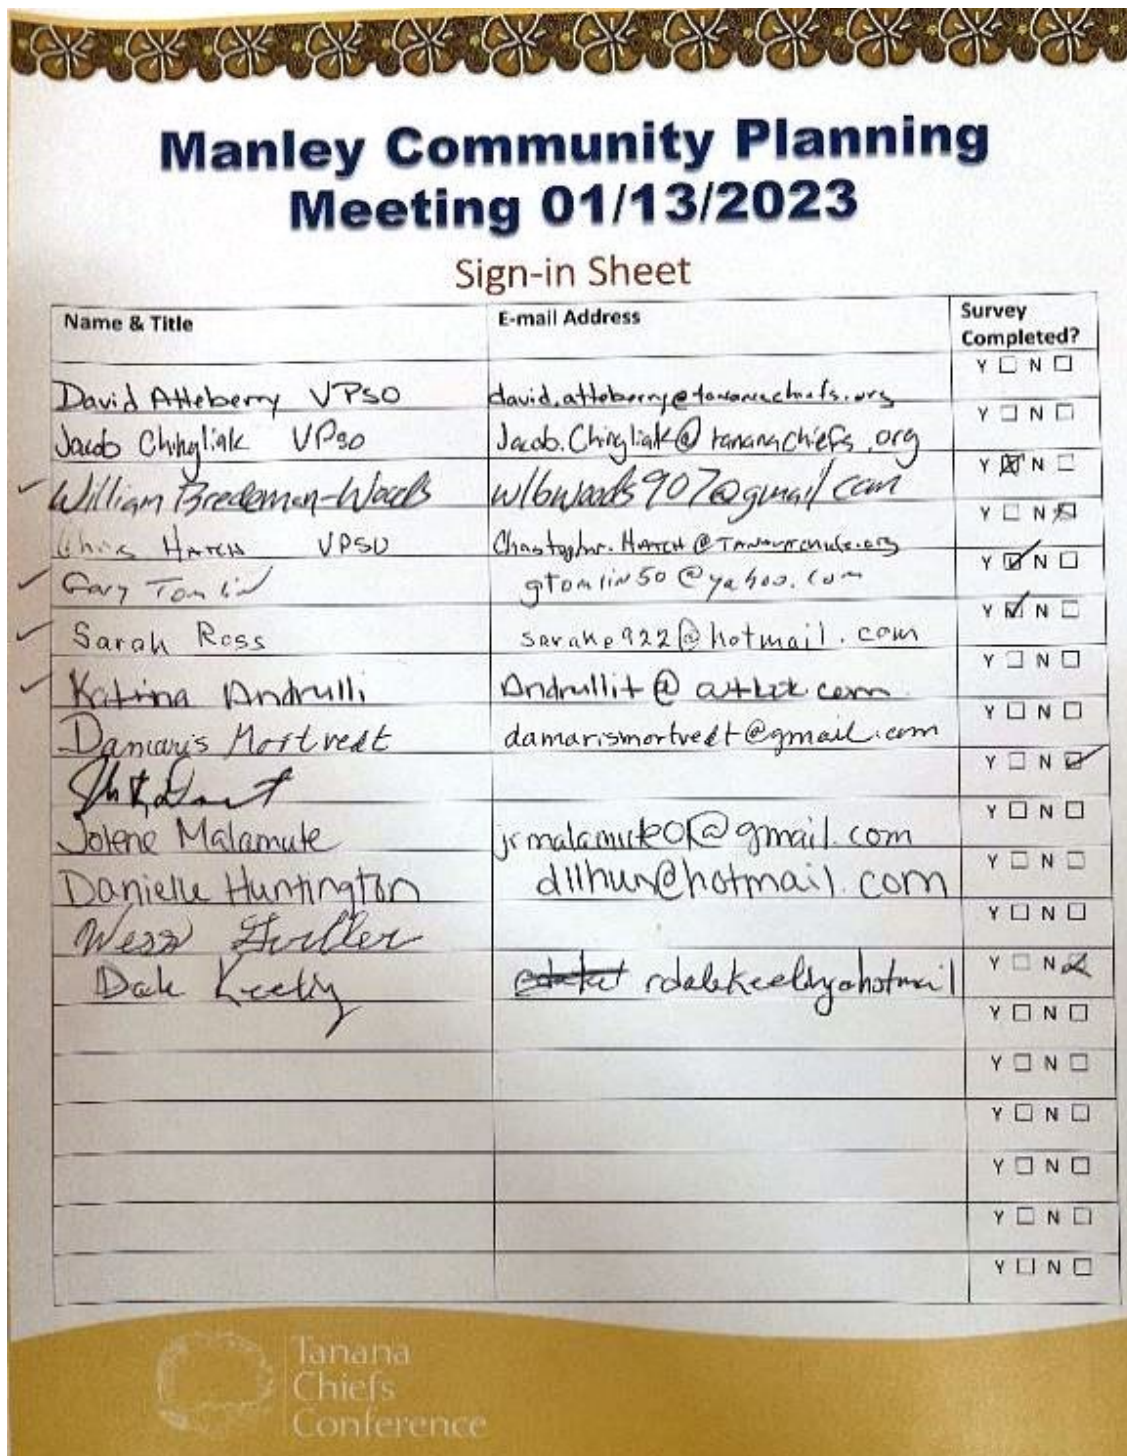 Manley Community Planning
Meeting 01/13/2023
Sign-in Sheet
Name & Title E-mail Address Survey Completed?
David Atteberry VPSO david.atteberry@tananachiefs.org Y ☐ N ☐
Jacob Chingliak VPSO Jacob.Chingliak@tananachiefs.org Y ☐ N ☐
✓ William Bredeman-Woods wlbwoods907@gmail com Y ☒ N ☐
Chris HATCH VPSO Y ☐ N ☒
✓ Gary Tomlin gtomlin50@yahoo.com Y ☑ N ☐
✓ Sarah Ross sarake922@hotmail.com Y ☑ N ☐
✓ Katina Andrulli Y ☐ N ☐
Damaris Mortvedt damarismortvedt@gmail.com Y ☐ N ☐
Y ☐ N ☑
Jolene Malamute Y ☐ N ☐
Danielle Huntington dllhun@hotmail.com Y ☐ N ☐
Wess Y ☐ N ☐
Dale Keelly Y ☐ N ☑
Y ☐ N ☐
Y ☐ N ☐
Y ☐ N ☐
Y ☐ N ☐
Y ☐ N ☐
Y ☐ N ☐
Tanana
Chiefs
Conference